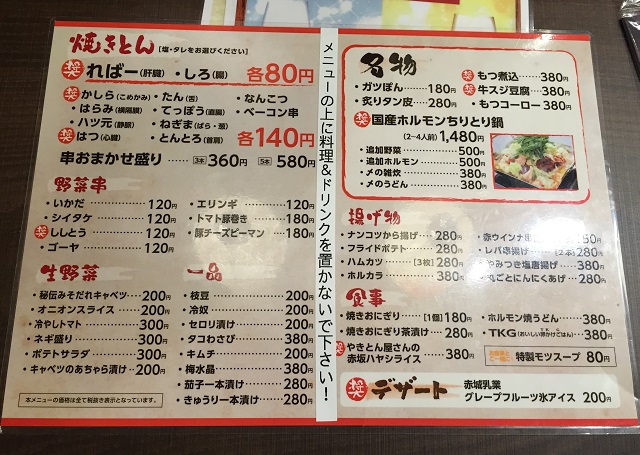 焼きとん 【塩・タレをお選びください】
奨 ればー(肝臓) ・しろ(腸) 各80円
奨 ・かしら(こめかみ) ・たん(舌) ・なんこつ
・はらみ(横隔膜) ・てっぽう(直腸) ・ベーコン串
・ハツ元(静脈) ・ねぎま(ばら・葱)
奨 はつ(心臓) ・とんとろ(首肩) 各140円
串おまかせ盛り 3本 360円 5本 580円
野菜串
・いかだ 120円
・シイタケ 120円
奨 ししとう 120円
・ゴーヤ 120円
・エリンギ 120円
・トマト豚巻き 180円
・豚チーズピーマン 180円
生野菜
・秘伝みそだれキャベツ 200円
・オニオンスライス 200円
・冷やしトマト 300円
・ネギ盛り 300円
・ポテトサラダ 300円
・キャベツのあちゃら漬け 200円
一品
・枝豆 200円
・冷奴 200円
・セロリ漬け 200円
・タコわさび 380円
・キムチ 200円
・梅水晶 380円
・茄子一本漬け 280円
・きゅうり一本漬け 280円
本メニューの価格は全て税抜き表示となっています。
メニューの上に料理&ドリンクを置かないで下さい!
名物
・ガツぽん 180円
・炙りタン皮 280円
奨 もつ煮込 380円
奨 牛スジ豆腐 380円
・もつコーロー 380円
奨 国産ホルモンちりとり鍋
(2~4人前) 1,480円
・追加野菜 500円
・追加ホルモン 500円
・〆の雑炊 380円
・〆のうどん 380円
揚げ物
・ナンコツから揚げ 280円
・フライドポテト 280円
・ハムカツ [3枚] 280円
・ホルカラ 380円
・赤ウインナ
・レバ串揚げ [2本] 280円
・やみつき塩唐揚げ 380円
・丸ごとにんにくあげ 280円
食事
・焼きおにぎり [1個] 180円
・焼きおにぎり茶漬け 280円
奨 やきとん屋さんの
赤坂ハヤシライス 380円
・ホルモン焼うどん 380円
・TKG(おいしい卵かけごはん) 380円
特製モツスープ 80円
奨 デザート
赤城乳業
グレープフルーツ氷アイス 200円